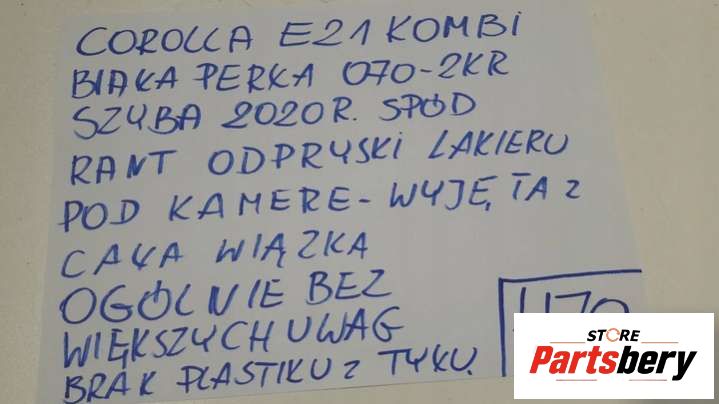 COROLLA E21 KOMBI
BIAŁA PERŁA 070-2KR
SZYBA 2020R. SPÓD
RANT ODPRYSKI LAKIERU
POD KAMERE-WYJĘTA Z
CAŁĄ WIĄZKĄ
OGÓLNIE BEZ
WIĘKSZYCH UWAG
BRAK PLASTIKU Z TYŁU.
STORE
Partsbery